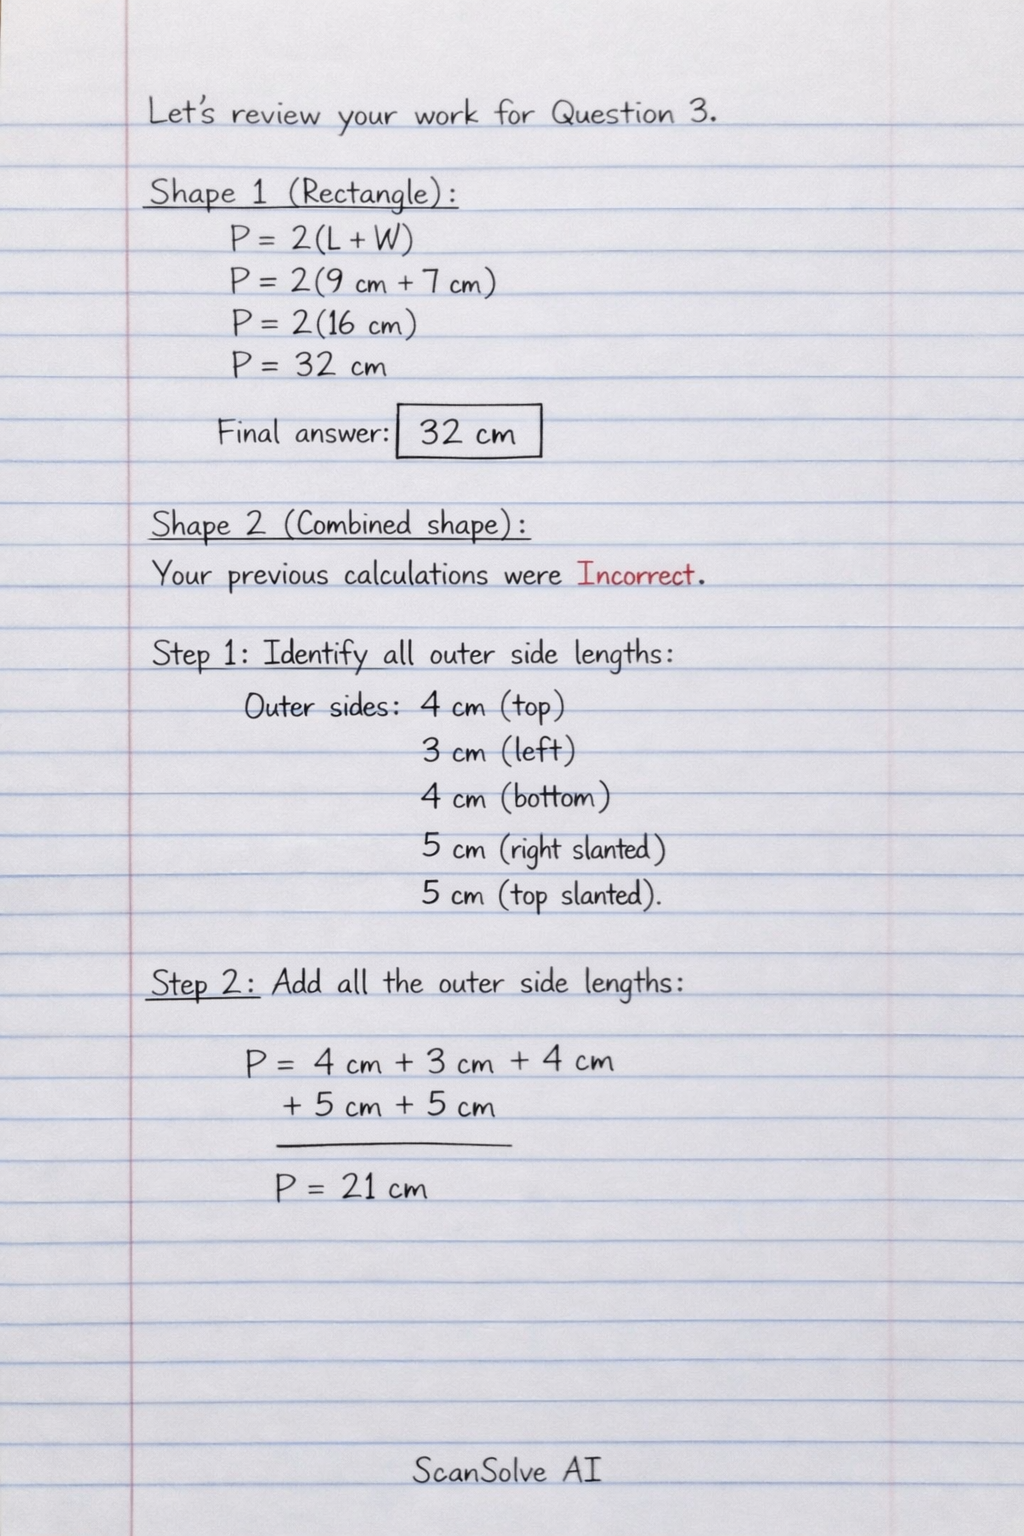 Let's review your work for Question 3.
Shape 1 (Rectangle):
P = 2(L + W)
P = 2(9 cm + 7 cm)
P = 2(16 cm)
P = 32 cm
Final answer: 32 cm
Shape 2 (Combined shape):
Your previous calculations were Incorrect.
Step 1: Identify all outer side lengths:
Outer sides: 4 cm (top)
3 cm (left)
4 cm (bottom)
5 cm (right slanted)
5 cm (top slanted).
Step 2: Add all the outer side lengths:
P = 4 cm + 3 cm + 4 cm
+ 5 cm + 5 cm
P = 21 cm
ScanSolve AI